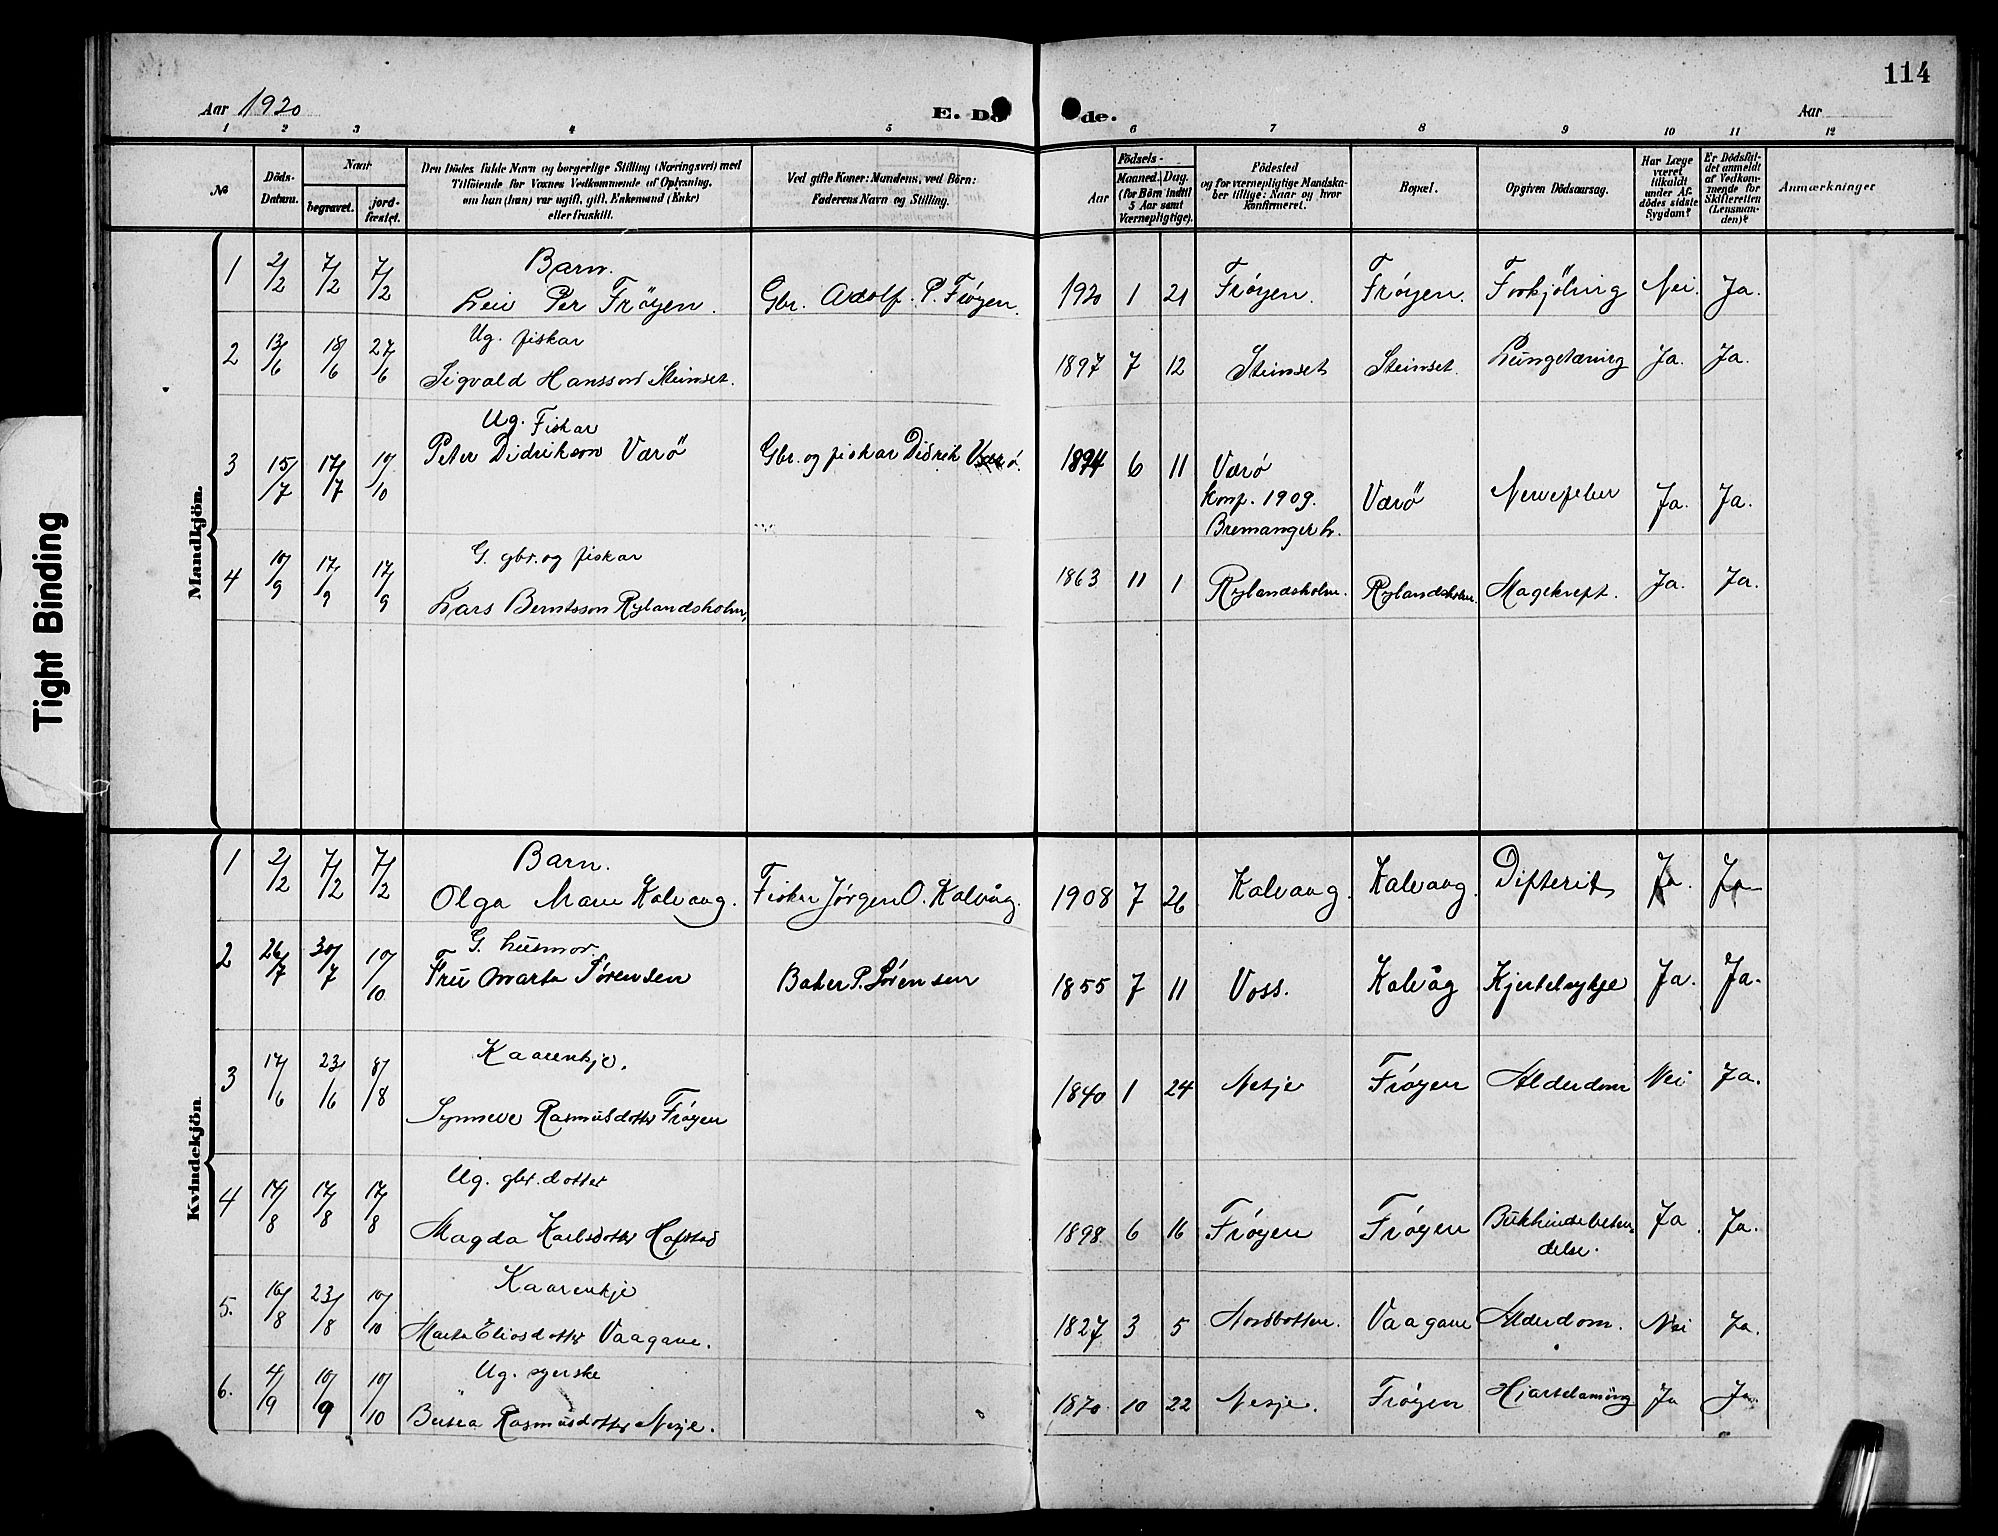 114
Aar 1920
E. Dö de.
Aar
1 2 3 4 5 6 7 8 9 10 11 12
№
Döds-Datum.
Naar
begravet.
jord-fæstet.
Den Dödes fulde Navn og borgerlige Stilling (Næringsvei) med
Tilföiende for Voxnes Vedkommende af Oplysning,
om hun (han) var ugift, gift, Enkemand (Enke)
eller fraskilt.
Ved gifte Koner: Mandens, ved Börn:
Faderens Navn og Stilling.
Födsels-
Aar
Maaned. Dag.
(for Börn indtil
5 Aar samt
Værnepligtige).
Födested
og for værnepligtige Mandska-
ber tillige: Naar og hvor
konfirmeret.
Bopæl.
Opgiven Dödsaarsag.
Har Læge
været
tilkaldt
under Af-
dödes sidste
Sygdom?
Er Dödsfal-
det anmeldt
af Vedkom-
mende for
Skifteretten
(Lensman-
den)?
Anmærkninger
Tight Binding
Mandkjön.
1 2/2 7/2 7/2 Barn.
Leiv Per Frøyen. Gbr. Adolf P. Frøyen. 1920 1 21 Frøyen. Frøyen. Forkjöling Nei. Ja.
2 13/6 18/6 27/6 Ug. fiskar
Sigvald Hansson Steinset. 1897 7 12 Steinset Steinset. Lungetæring Ja. Ja.
3 15/7 17/7 10/10 Ug. Fiskar
Peter Didrikson Værö Gbr. og fiskar Didrik Værø. 1894 6 11 Værø
konf. 1909.
Bremanger k. Værö Nervefeber Ja. Ja.
4 10/9 17/9 17/9 G. gbr. og fiskar
Lars Berntsson Rylandsholm, 1863 11 1 Rylandsholm. Rylandsholm. Magekreft. Ja. Ja.
Kvindekjön
1 2/2 7/2 7/2 Barn.
Olga Marie Kalvaag. Fisker Jørgen O. Kalvåg. 1908 7 26 Kalvaag. Kalvaag. Difterit Ja. Ja
2 26/7 30/7 10/10 G. husmor.
Fru Marta Sørensen Baker P. Sørensen 1855 7 11 Voss. Kalvåg Kjertelsykje Ja. Ja.
3 17/6 23/6 8/8 Kaarenkje.
Synneve Rasmusdotter Frøyen 1840 1 24 Nesje Frøyen Alderdom Nei Ja.
4 17/8 17/8 Ug. gbr. dotter
Magda Karlsdotter Hofstad 1898 6 16 Frøyen Frøyen Bukhindebeten-
delse. Ja Ja.
5. 16/8 23/8 10/10 Kaarenkje
Marta Eliasdotter Vaagane. 1827 3 5 Nordbotten. Vaagane Alderdom. Nei Ja.
6. 4/9 10/9 10/10 Ug. syerske
Rasmusdotter Nesje. 1870 10 22 Nesje. Frøyen Hjartelaming Ja Ja